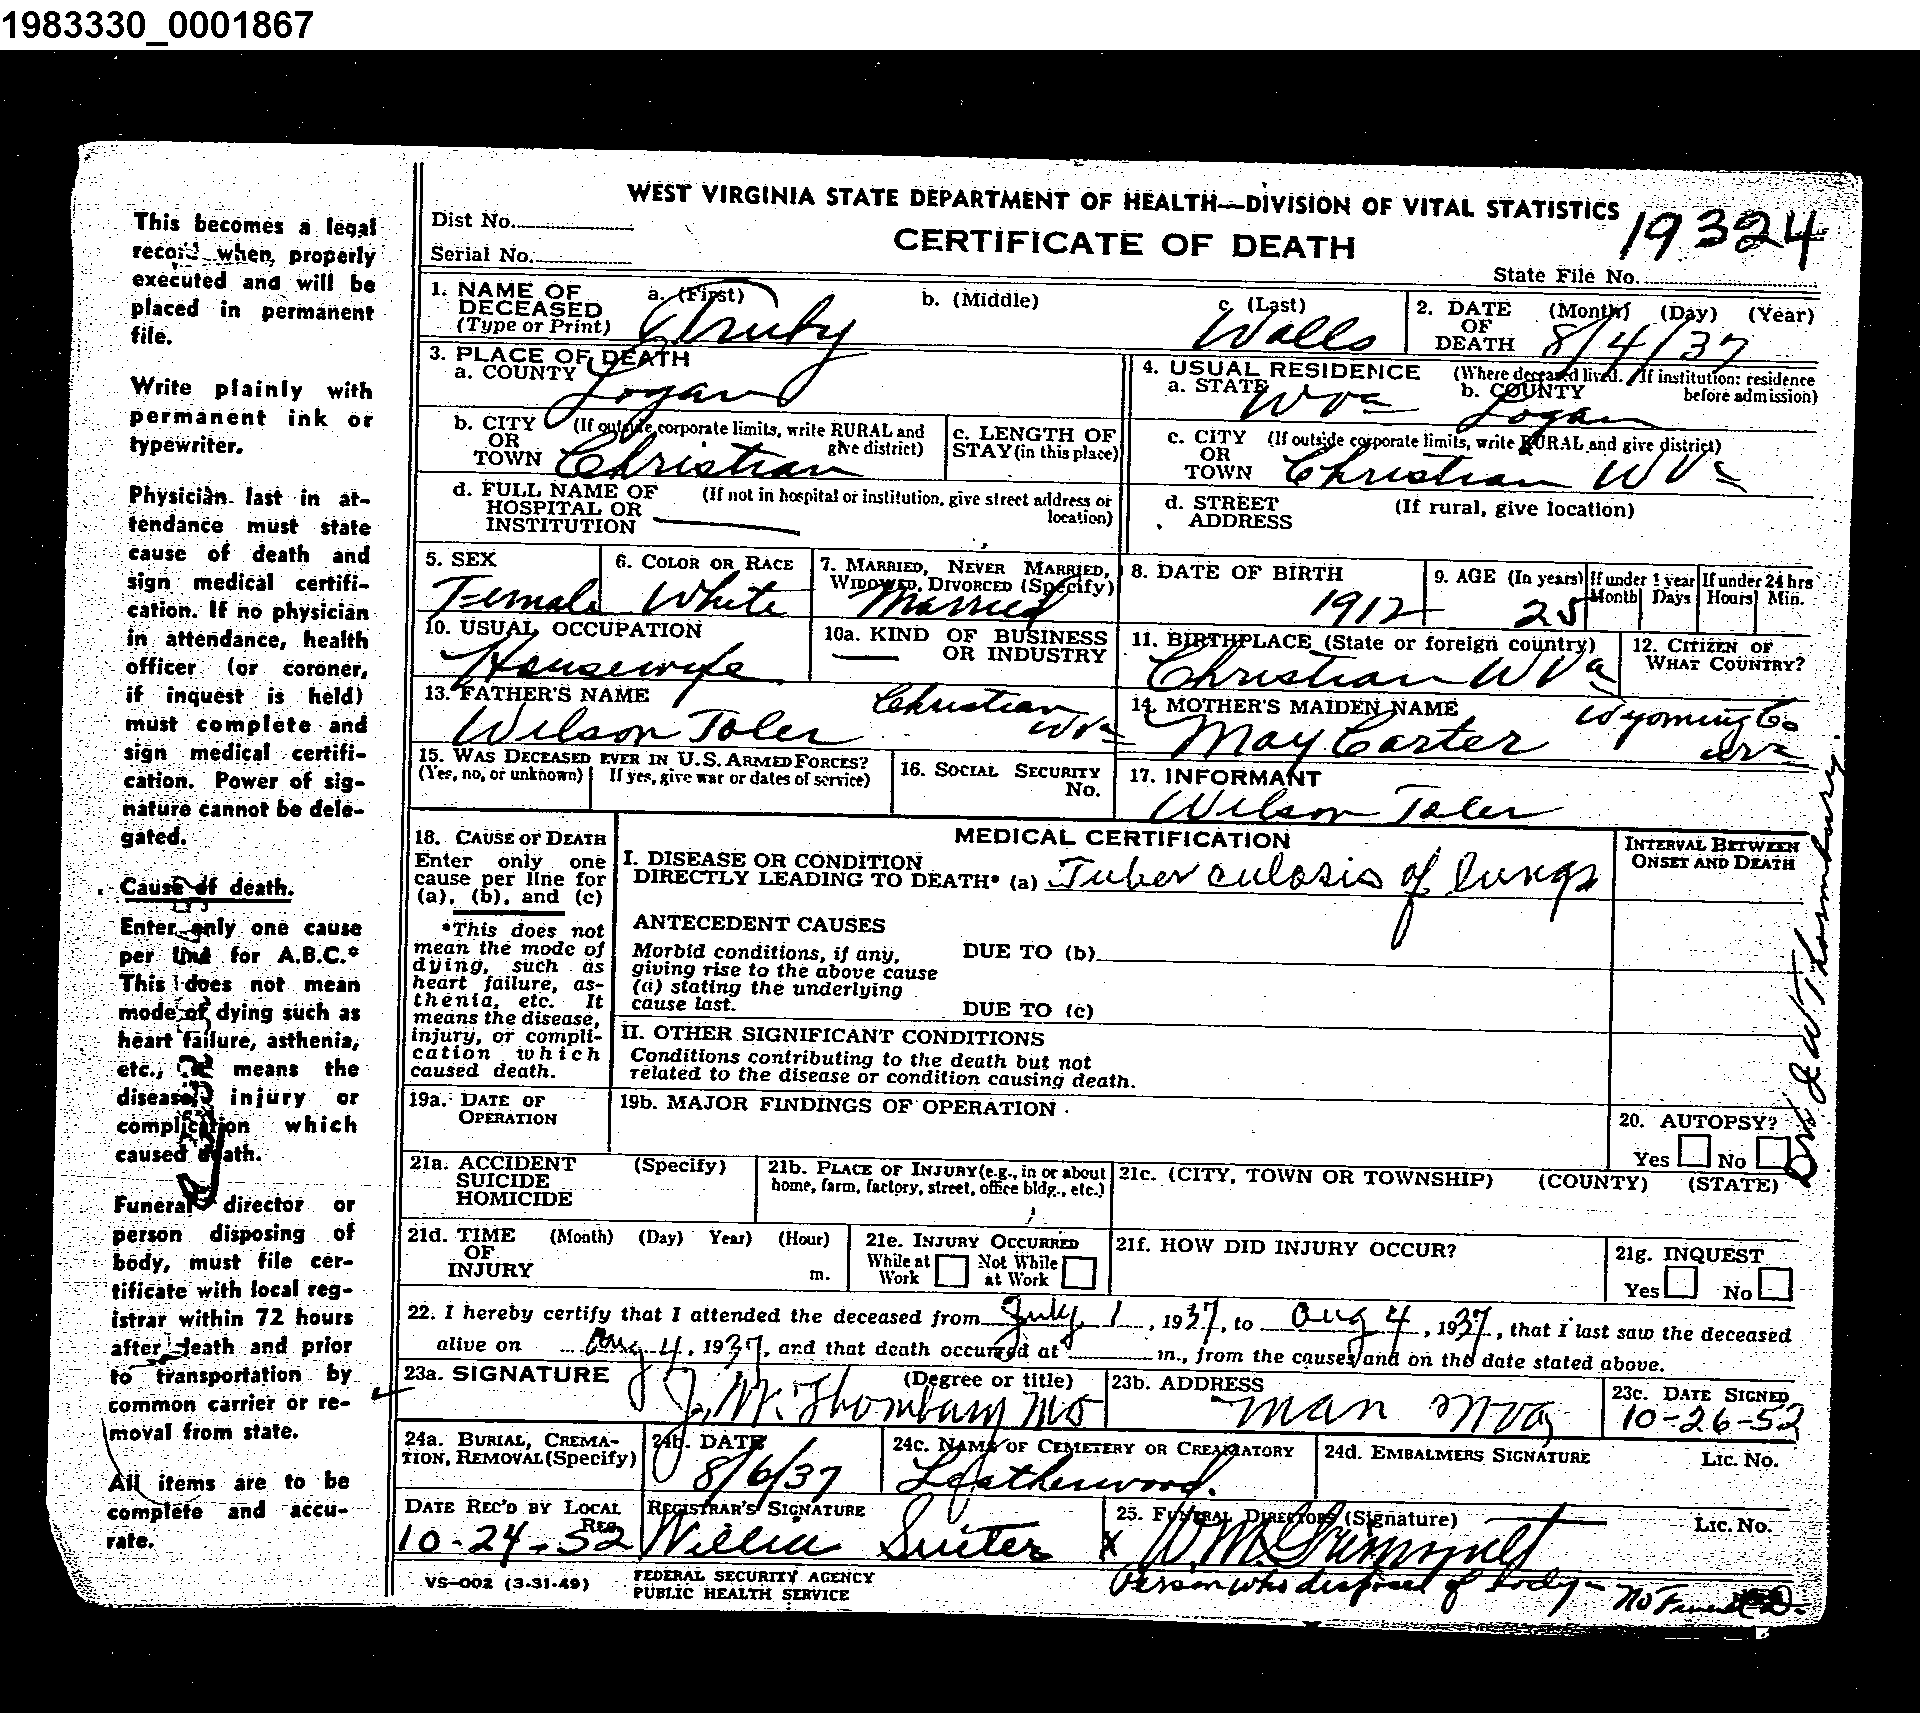 1983330_0001867
WEST VIRGINIA STATE DEPARTMENT OF HEALTH—DIVISION OF VITAL STATISTICS
19324
Dist No.
CERTIFICATE OF DEATH
Serial No.
State File No.
This becomes a legal
record when properly
executed and will be
placed in permanent
file.
Write plainly with
permanent ink or
typewriter.
Physician last in at-
tendance must state
cause of death and
sign medical certifi-
cation. If no physician
in attendance, health
officer (or coroner,
if inquest is held)
must complete and
sign medical certifi-
cation. Power of sig-
nature cannot be dele-
gated.
Cause of death.
Enter only one cause
per line for A.B.C.*
This does not mean
mode of dying such as
heart failure, asthenia,
etc., means the
disease, injury or
complication which
caused death.
Funeral director or
person disposing of
body, must file cer-
tificate with local reg-
istrar within 72 hours
after death and prior
to transportation by
common carrier or re-
moval from state.
All items are to be
complete and accu-
rate.
1. NAME OF DECEASED (Type or Print)
a. (First) b. (Middle) c. (Last)
Truby Walls
2. DATE OF DEATH (Month) (Day) (Year)
8/4/37
3. PLACE OF DEATH
a. COUNTY Logan
4. USUAL RESIDENCE (Where deceased lived. If institution: residence before admission)
a. STATE W Va b. COUNTY Logan
b. CITY OR TOWN (If outside corporate limits, write RURAL and give district)
Christian
c. LENGTH OF STAY (in this place)
c. CITY OR TOWN (If outside corporate limits, write RURAL and give district)
Christian W Va
d. FULL NAME OF HOSPITAL OR INSTITUTION (If not in hospital or institution, give street address or location)
d. STREET ADDRESS (If rural, give location)
5. SEX Female
6. COLOR OR RACE White
7. MARRIED, NEVER MARRIED, WIDOWED, DIVORCED (Specify)
Married
8. DATE OF BIRTH 1912
9. AGE (In years) 25
If under 1 year Month Days
If under 24 hrs Hours Min.
10. USUAL OCCUPATION
Housewife
10a. KIND OF BUSINESS OR INDUSTRY
11. BIRTHPLACE (State or foreign country)
Christian W Va
12. CITIZEN OF WHAT COUNTRY?
13. FATHER'S NAME
Wilson Toler Christian W Va
14. MOTHER'S MAIDEN NAME
May Carter Wyoming Co W Va
15. WAS DECEASED EVER IN U.S. ARMED FORCES?
(Yes, no, or unknown) If yes, give war or dates of service)
16. SOCIAL SECURITY No.
17. INFORMANT
Wilson Toler
18. CAUSE OF DEATH
Enter only one
cause per line for
(a), (b), and (c)
*This does not
mean the mode of
dying, such as
heart failure, as-
thenia, etc. It
means the disease,
injury, or compli-
cation which
caused death.
MEDICAL CERTIFICATION
I. DISEASE OR CONDITION
DIRECTLY LEADING TO DEATH* (a) Tuberculosis of lungs
INTERVAL BETWEEN ONSET AND DEATH
ANTECEDENT CAUSES
Morbid conditions, if any,
giving rise to the above cause
(a) stating the underlying
cause last.
DUE TO (b)
DUE TO (c)
II. OTHER SIGNIFICANT CONDITIONS
Conditions contributing to the death but not
related to the disease or condition causing death.
19a. DATE OF OPERATION
19b. MAJOR FINDINGS OF OPERATION
20. AUTOPSY?
Yes No
21a. ACCIDENT SUICIDE HOMICIDE (Specify)
21b. PLACE OF INJURY (e.g., in or about home, farm, factory, street, office bldg., etc.)
21c. (CITY, TOWN OR TOWNSHIP) (COUNTY) (STATE)
21d. TIME OF INJURY (Month) (Day) Year) (Hour) m.
21e. INJURY OCCURRED
While at Work Not While at Work
21f. HOW DID INJURY OCCUR?
21g. INQUEST
Yes No
22. I hereby certify that I attended the deceased from July 1, 1937, to Aug 4, 1937, that I last saw the deceased
alive on Aug 4, 1937, and that death occurred at m., from the causes and on the date stated above.
23a. SIGNATURE (Degree or title)
23b. ADDRESS
Man W Va
23c. DATE SIGNED
10-26-52
24a. BURIAL, CREMA-
TION, REMOVAL (Specify)
24b. DATE
8/6/37
24c. NAME OF CEMETERY OR CREMATORY
Leatherwood.
24d. EMBALMERS SIGNATURE Lic. No.
DATE REC'D BY LOCAL REG.
10-24-52
REGISTRAR'S SIGNATURE
Willia Suiter
25. FUNERAL DIRECTORS (Signature) Lic. No.
Person who disposed of body-
VS-002 (3-31-49)
FEDERAL SECURITY AGENCY
PUBLIC HEALTH SERVICE